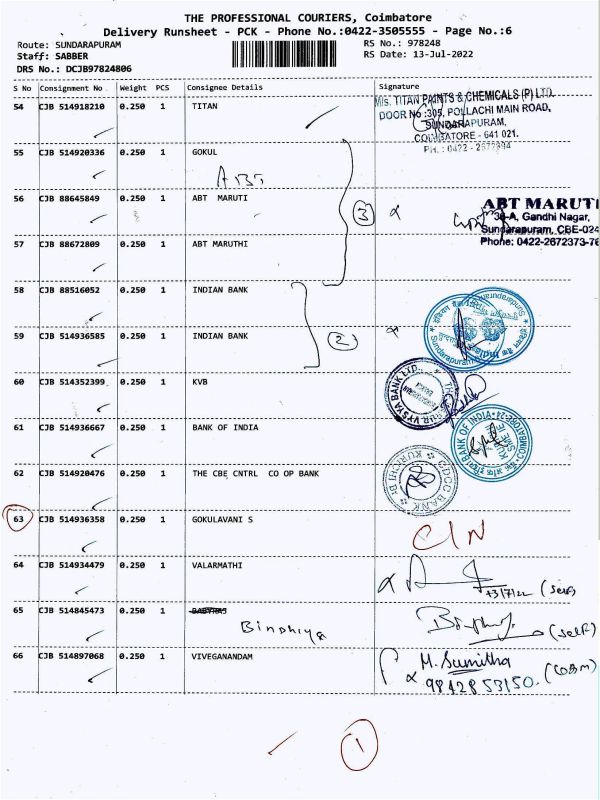 THE PROFESSIONAL COURIERS, Coimbatore
Delivery Runsheet - PCK - Phone No.:0422-3505555 - Page No.:6
Route: SUNDARAPURAM
RS No.: 978248
Staff: SABBER
RS Date: 13-Jul-2022
DRS No.: DCJB97824806
S No Consignment No Weight PCS Consignee Details Signature
54 CJB 514918210 0.250 1 TITAN
M/s. TITAN PAINTS & CHEMICALS (P) LTD.
DOOR No :305, POLLACHI MAIN ROAD,
SUNDARAPURAM,
COIMBATORE - 641 021.
PH. : 0422 - 2672894
55 CJB 514920336 0.250 1 GOKUL
56 CJB 88645849 0.250 1 ABT MARUTI
3
ABT MARUTI
38-A, Gandhi Nagar,
Sundarapuram, CBE-024
Phone: 0422-2672373-76
57 CJB 88672809 0.250 1 ABT MARUTHI
58 CJB 88516052 0.250 1 INDIAN BANK
59 CJB 514936585 0.250 1 INDIAN BANK
2
60 CJB 514352399 0.250 1 KVB
61 CJB 514936667 0.250 1 BANK OF INDIA
BANK OF INDIA
62 CJB 514920476 0.250 1 THE CBE CNTRL CO OP BANK
63 CJB 514936358 0.250 1 GOKULAVANI S
C/N
64 CJB 514934479 0.250 1 VALARMATHI
(self)
65 CJB 514845473 0.250 1
Bindhiya
(self)
66 CJB 514897068 0.250 1 VIVEGANANDAM
M. Sumitha
9842853150.
1